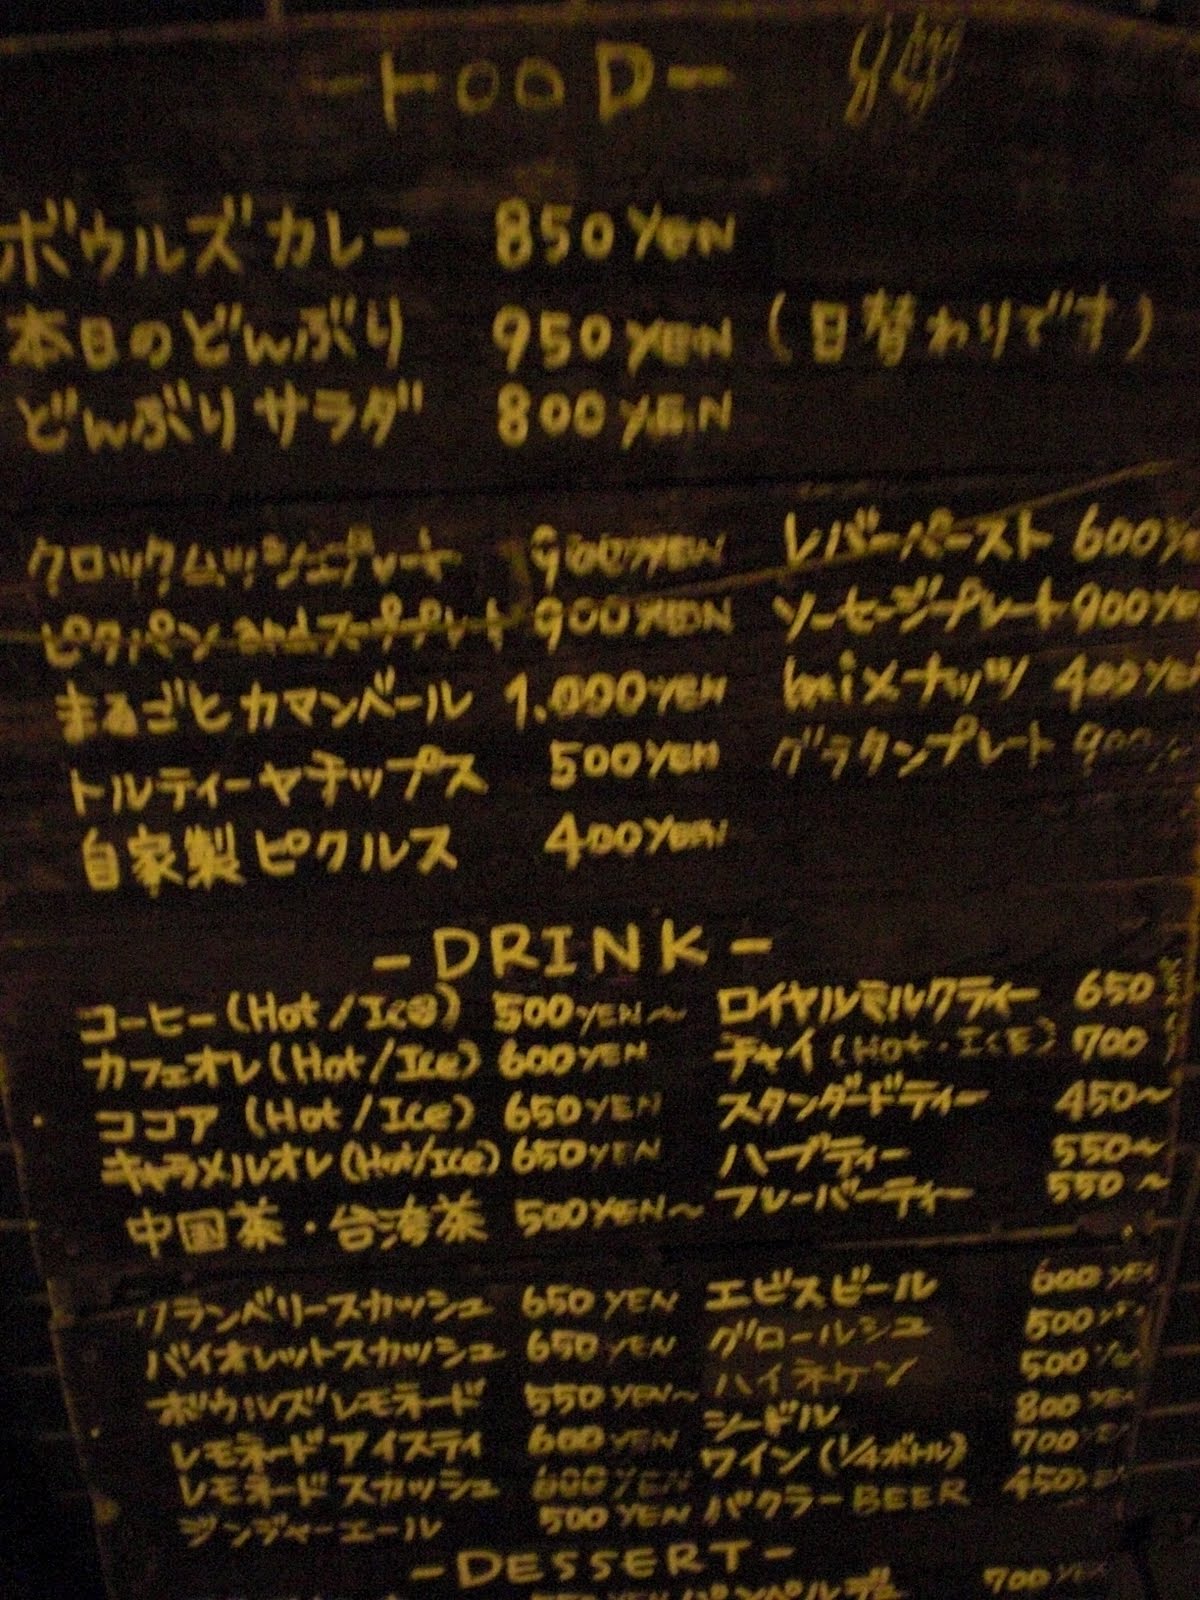 -FOOD-
ボウルズカレー 850YEN
本日のどんぶり 950YEN (日替わりです)
どんぶりサラダ 800YEN
クロックムッシュプレート 900YEN
ピタパン andスーププレート 900YEN
まるごとカマンベール 1.000YEN
トルティーヤチップス 500YEN
自家製ピクルス 400YEN
レバーペースト 600YE
ソーセージプレート 900YE
mixナッツ 400YEN
グラタンプレート 900
-DRINK-
コーヒー(Hot/Ice) 500YEN~
カフェオレ(Hot/Ice) 600YEN
ココア (Hot/Ice) 650YEN
キャラメルオレ(Hot/Ice) 650YEN
中国茶・台湾茶 500YEN~
ロイヤルミルクティー 650
チャイ(Hot・ICE) 700
スタンダードティー 450~
ハーブティー 550~
フレーバーティー 550~
クランベリースカッシュ 650YEN
バイオレットスカッシュ 650YEN
ボウルズレモネード 550YEN~
レモネードアイスティ 600YEN
レモネードスカッシュ 600YEN
ジンジャーエール 500YEN
エビスビール 600YEN
グロールシュ 500YEN
ハイネケン 500YEN
シードル 800YEN
ワイン(1/4ボトル) 700YEN
バクラーBEER 450YEN
-DESSERT-
700YEN